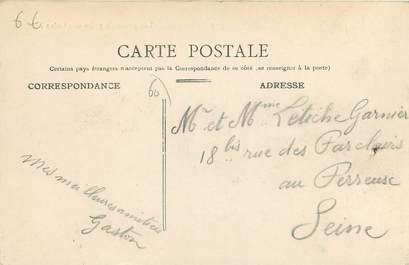 66
CARTE POSTALE
Certains pays étrangers n'acceptent pas la Correspondance de ce côté (se renseigner à la poste)
CORRESPONDANCE
60
ADRESSE
Mr et Mme Letiche Garnier
18 bis rue des Parclairs
au Perreuse
Seine
Mes meilleures amitiés
Gaston